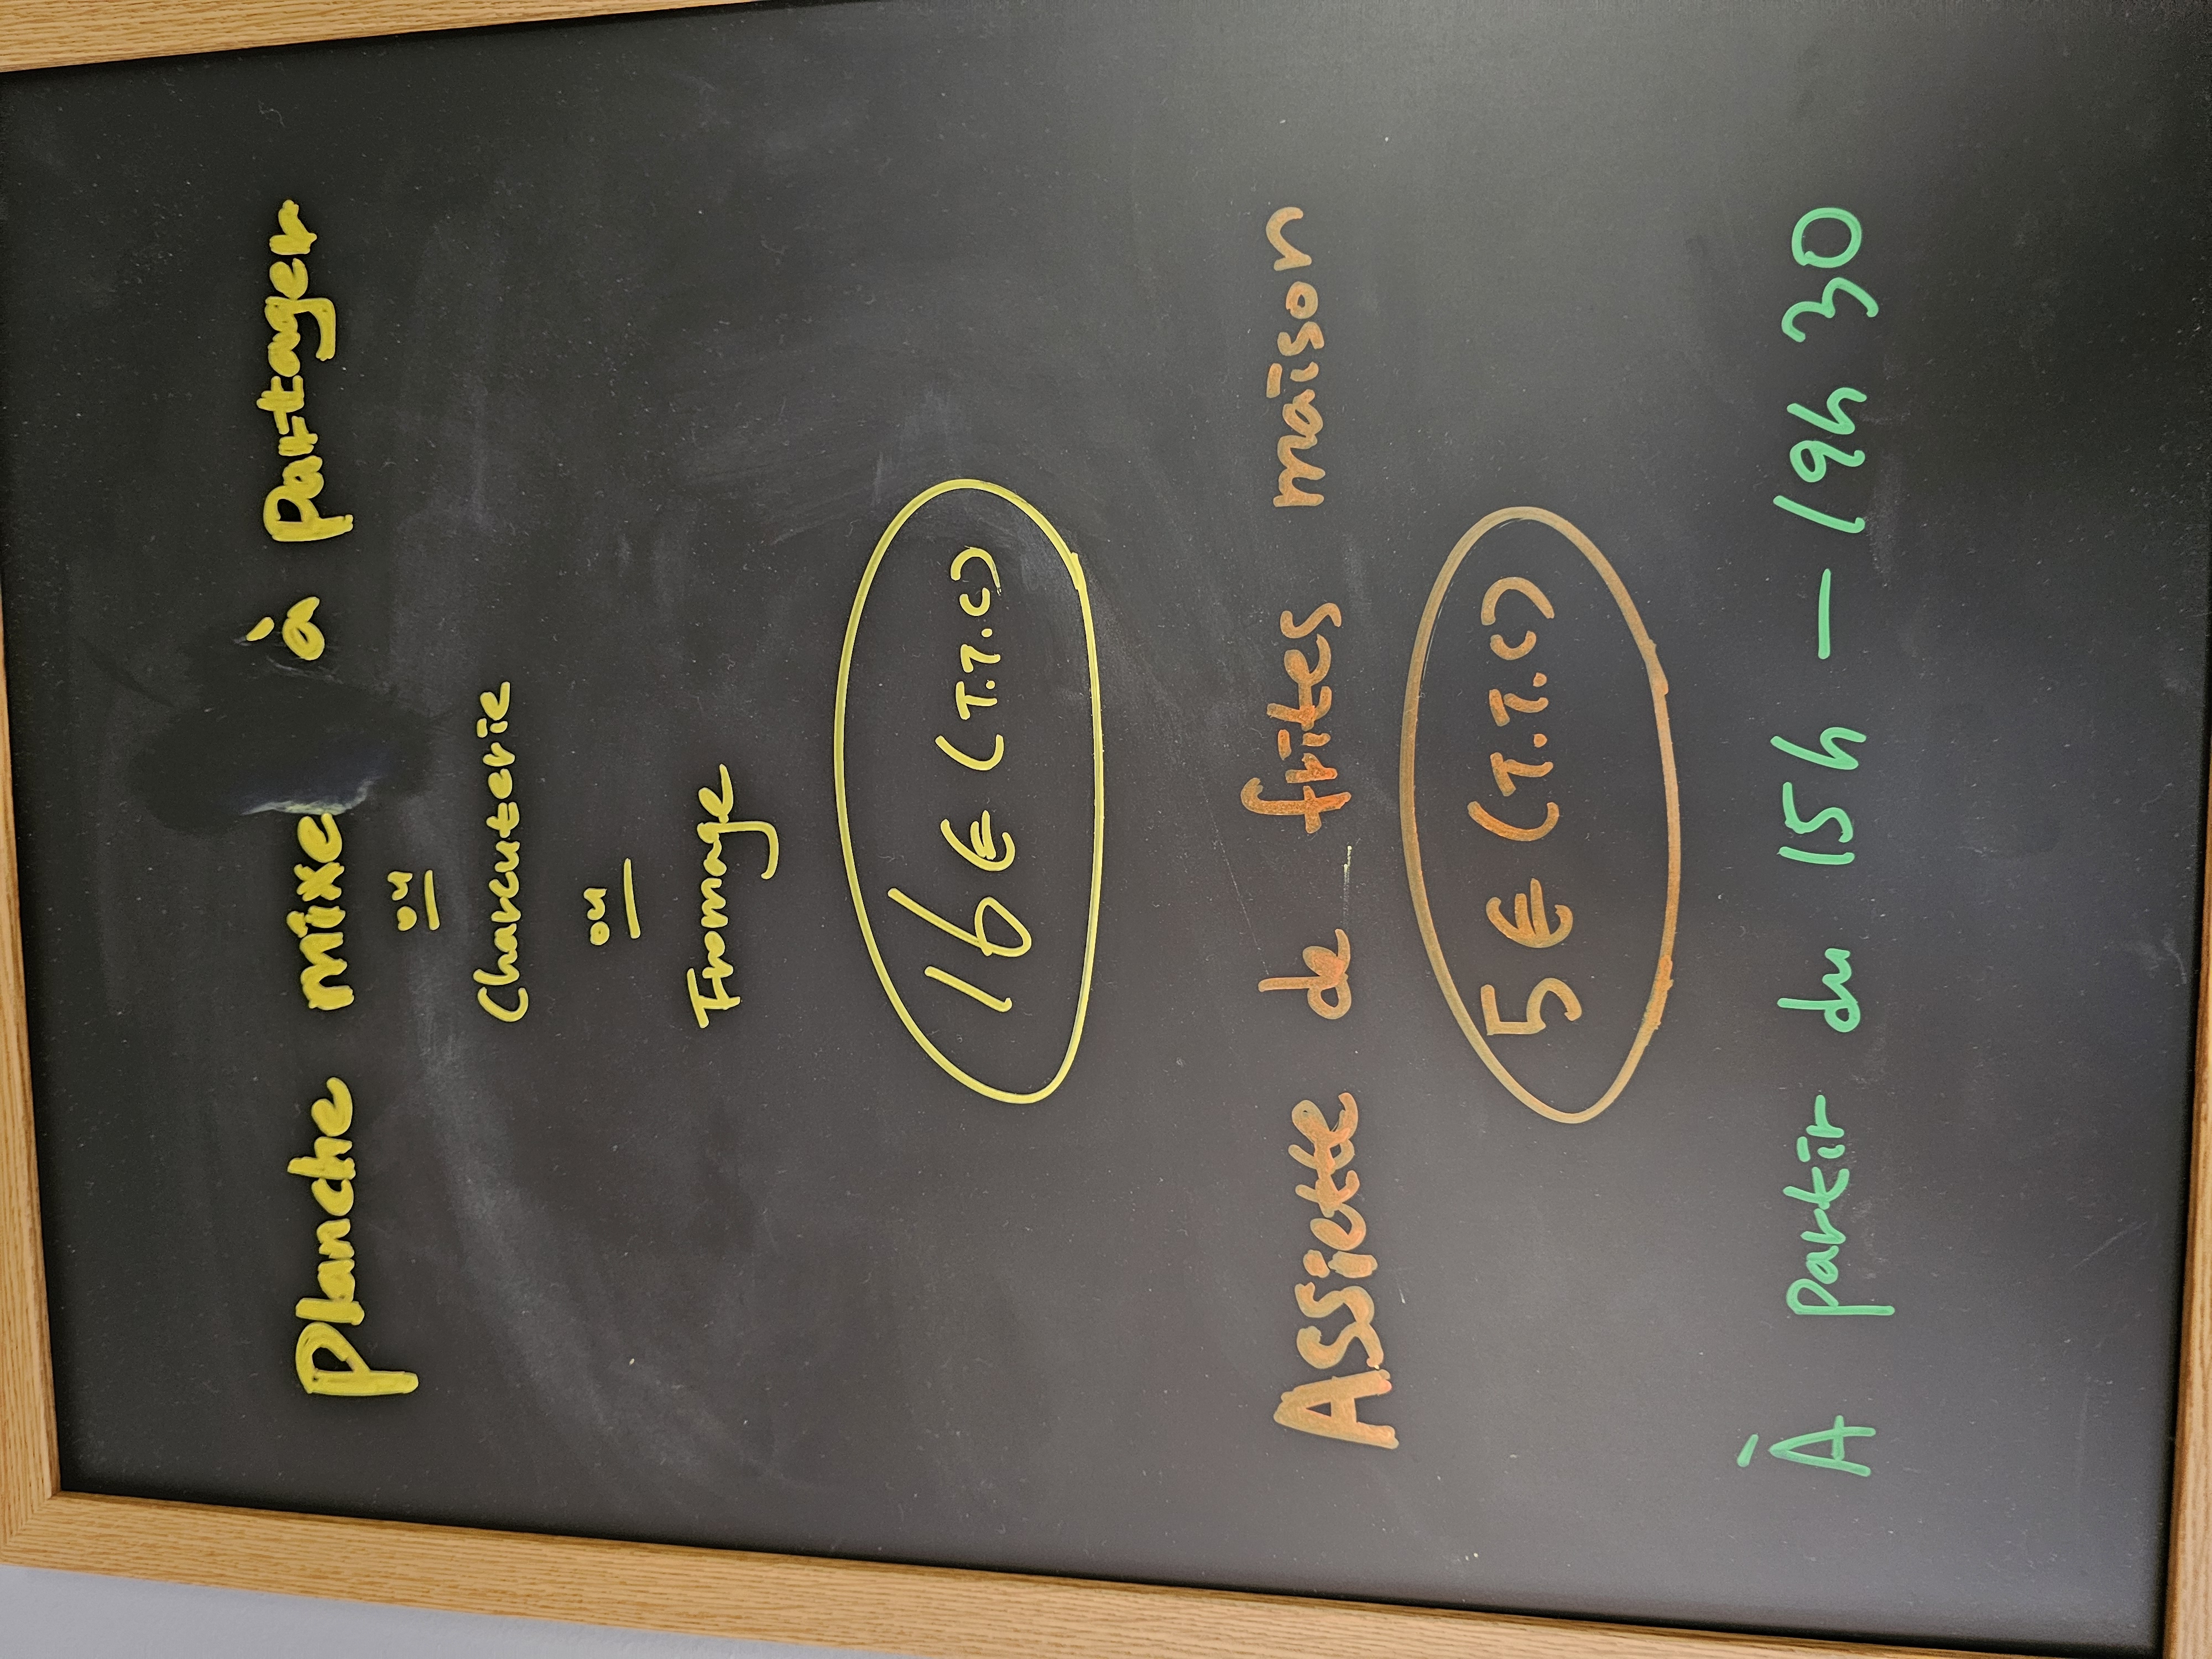 Planche mixe à Partager
ou
Charcuterie
ou
Fromage
16€ (T.T.C)
Assiette de frites maison
5€ (T.T.C)
À partir du 15h - 19h 30